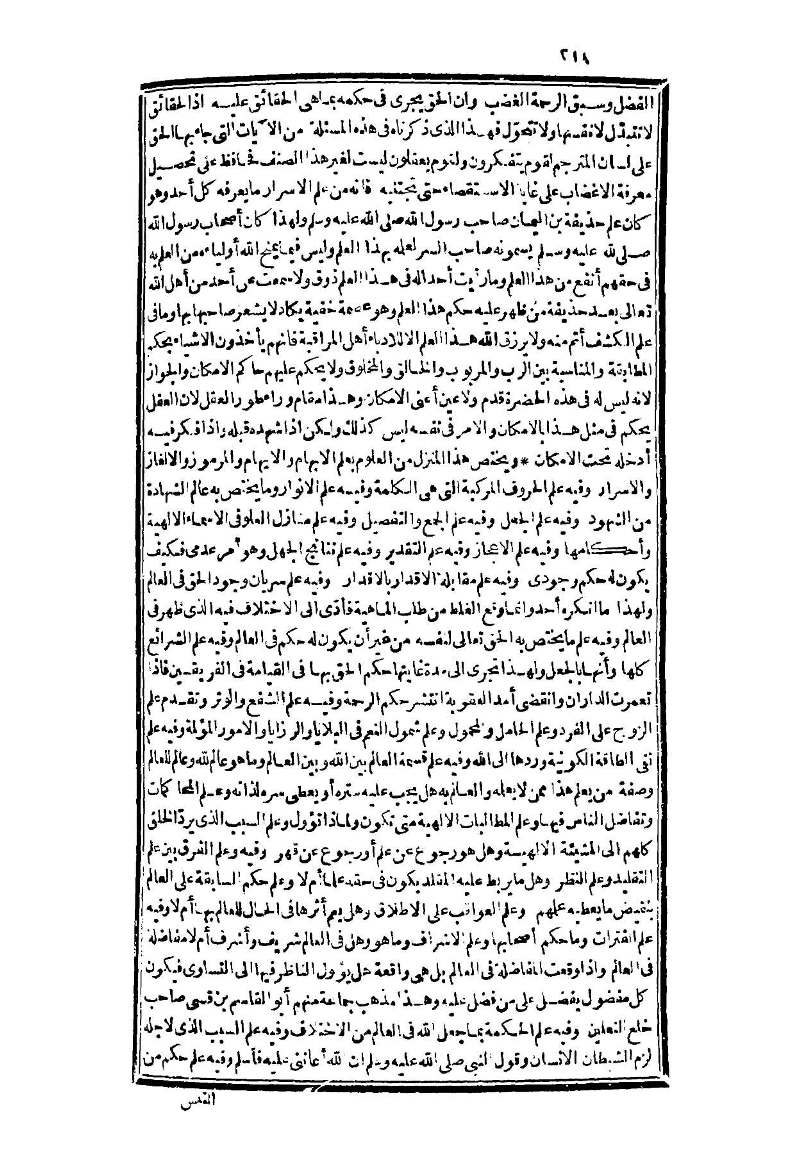 ٢١٨
الفضل وسبق الرحمة الغضب وان الحق يجرى فى حكمه بما هى الحقائق عليه اذ الحقائق
لا تتبدل لا نفسها ولا تتحول فهذا الذى ذكرناه فى هذه المسئلة من الآيات التى جاء بها الحق
على لسان المترجم لقوم يتفكرون ولقوم يعقلون ليست لغير هذا الصنف فحافظ على تحصيل
معرفة الاغضاب على غاية الاستقصاء حتى تجتنبه فانه من علم الاسرار ما يعرفه كل أحد وهو
كان علم حذيفة بن اليمان صاحب رسول الله صلى الله عليه وسلم ولهذا كان أصحاب رسول الله
صلى الله عليه وسلم يسمونه صاحب السر لعلمه بهذا العلم وليس فيما يمنح الله أولياءه من العلم به
فى حقهم أنفع من هذا العلم وما رأيت أحدا له فى هذا العلم ذوق ولا سمعت عن أحد من أهل الله
تعالى بعد حذيفة من ظهر عليه حكم هذا العلم وهو عصمة خفية يكاد لا يشعر صاحبها بها وما فى
علم الكشف أتم منه ولا يرزق الله هذا العلم الا للادباء أهل المراقبة فانهم يأخذون الاشياء بحكم
المطابقة والمناسبة بين الرب والمربوب والخالق والمخلوق ولا يحكم عليهم حاكم الامكان والجواز
لانه ليس له فى هذه الحضرة قدم ولا عين أعنى الامكان وهذا مقام وراء طور العقل لان العقل
يحكم فى مثل هذا بالامكان والامر فى نفسه ليس كذلك ولكن اذا شهده قبله واذا فكر فيه
أدخله تحت الامكان * ويختص هذا المنزل من العلوم بعلم الابهام والايهام والمرموز والالغاز
والاسرار وفيه علم الحروف المركبة التى هى الكلمة وفيه علم الانوار وما يختص به عالم الشهادة
من الشهود وفيه علم الجعل وفيه علم الجمع والتفصيل وفيه علم منازل العلو فى الاسماء الالهية
وأحكامها وفيه علم الاعجاز وفيه علم التقدير وفيه علم نتائج الجهل وهو أمر عدمى فكيف
يكون له حكم وجودى وفيه علم مقابلة الاقدار بالاقدار وفيه علم سريان وجود الحق فى العالم
ولهذا ما انكره أحد وانما وقع الغلط من طلب الماهية فأدى الى الاختلاف فيه الذى ظهر فى
العالم وفيه علم ما يختص به الحق تعالى لنفسه من غير أن يكون له حكم فى العالم وفيه علم الشرائع
كلها وأنها بالجعل ولهذا تجرى الى مدة غايتها حكم الحق بها فى القيامة فى الفريقين فاذا
تعمرت الداران وانقضى أمد العقوبة انتشر حكم الرحمة وفيه علم الشفع والوتر وتقدم علم
الزوج على الفرد وعلم الحامل والمحمول وعلم شمول النعم فى البلايا والرزايا والامور المؤلمة وفيه علم
نفى الطاقة الكونية وردها الى الله وفيه علم قسمة العالم بين الله وبين العالم وما هو عالم لله وعالم للعالم
وصفة من يعلم هذا ممن لا يعلمه والعالم به هل يجب عليه ستره أو يعطى سره لذاته وعلم المحاكمات
وتفاضل الناس فيها وعلم المطالبات الالهية متى تكون ولماذا تؤول وعلم السبب الذى يرد الخلق
كلهم الى المشيئة الالهية وهل هو رجوع عن علم أو رجوع عن قهر وفيه وعلم الفرق بين علم
التقليد وعلم النظر وهل ما يربط عليه المقلد يكون فى حقه علما أم لا وعلم حكم السابقة على العالم
بنقيض ما يعطيه عملهم وعلم العواقب على الاطلاق وهل يعم أثرها فى الحال للعالم بها أم لا وفيه
علم الفترات وما حكم أصحابها وعلم الاشراف وما هو وهل فى العالم شريف وأشرف أم لا مفاضلة
فى العالم واذا وقعت المفاضلة فى العالم بل هى واقعة هل يؤول الناظر فيها الى التساوى فيكون
كل مفضول يفضل على من فضل عليه وهذا مذهب جماعة منهم أبو القاسم بن قسى صاحب
خلع النعلين وفيه علم الحكمة بما جعل الله فى العالم من الاختلاف وفيه علم السبب الذى لاجله
لزم الشيطان الانسان وقول النبى صلى الله عليه وسلم ان الله أعاننى عليه فأسلم وفيه علم حكم من
القدس